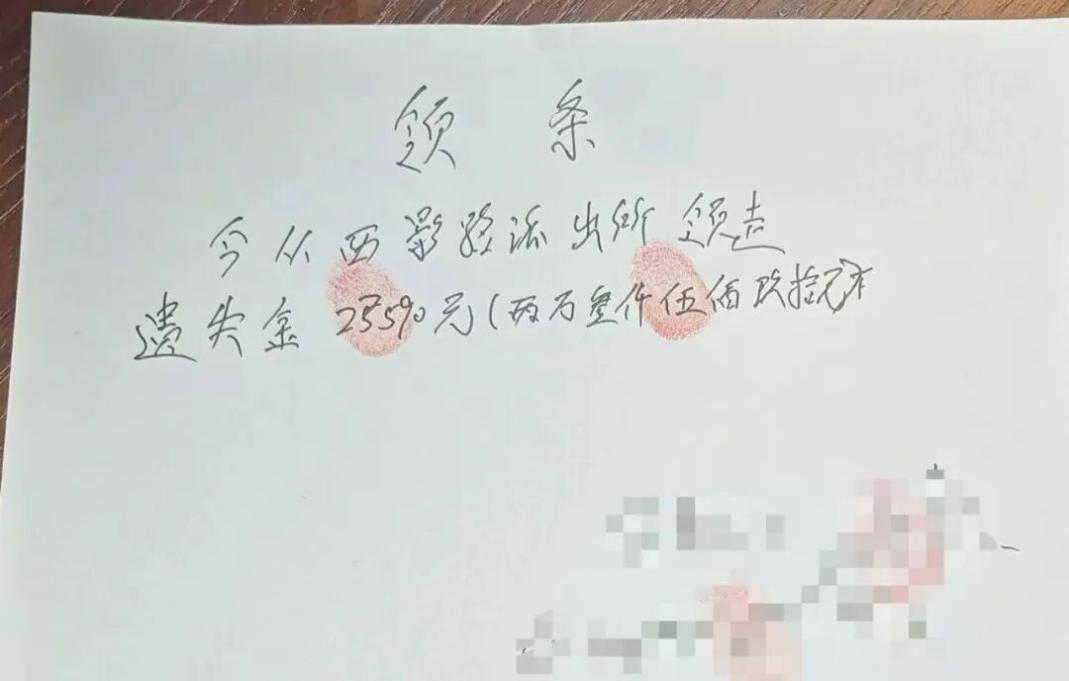 领 条
今从西影路派出所领走
遗失金23590元(两万叁仟伍佰玖拾元)